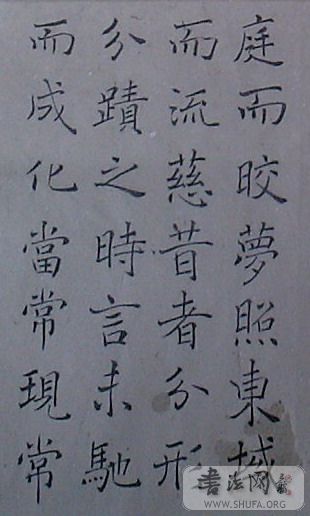 庭而皎夢照東域
而流慈昔者分形
分蹟之時言未馳
而成化當常現常
书法网
WWW.SHUFA.ORG